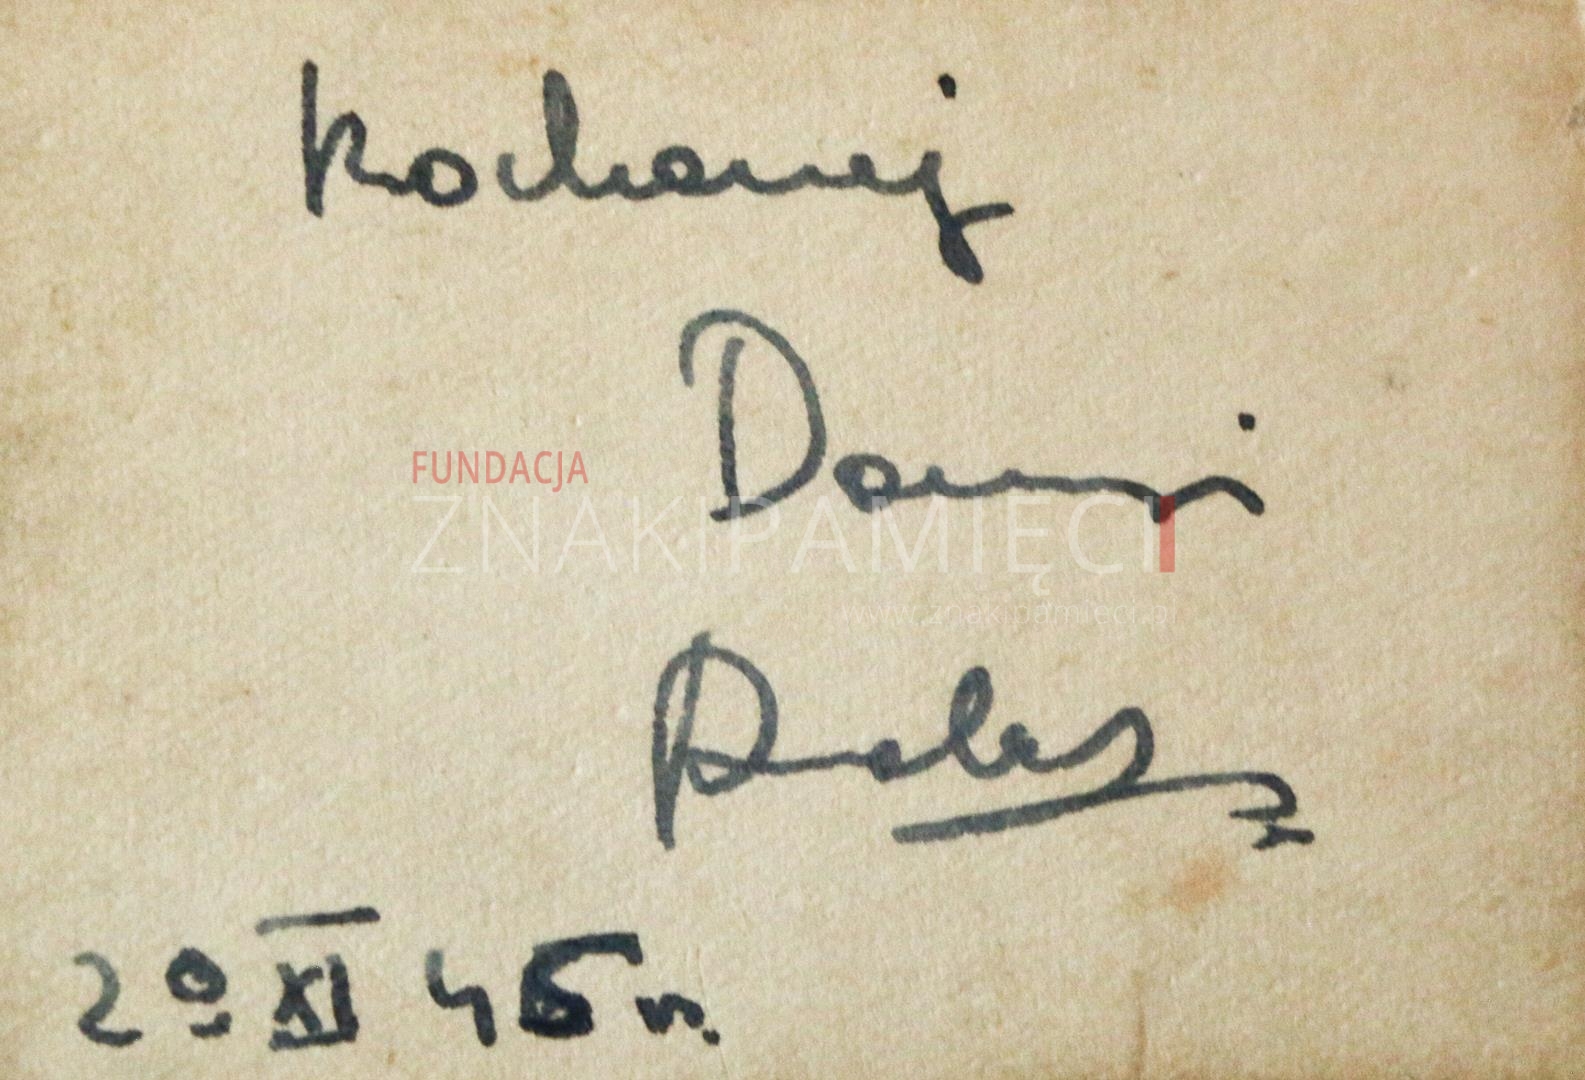 Kochanej
Danusi
FUNDACJA
ZNAKI PAMIĘCI
www.znakipamieci.pl
20 XI 45 r.